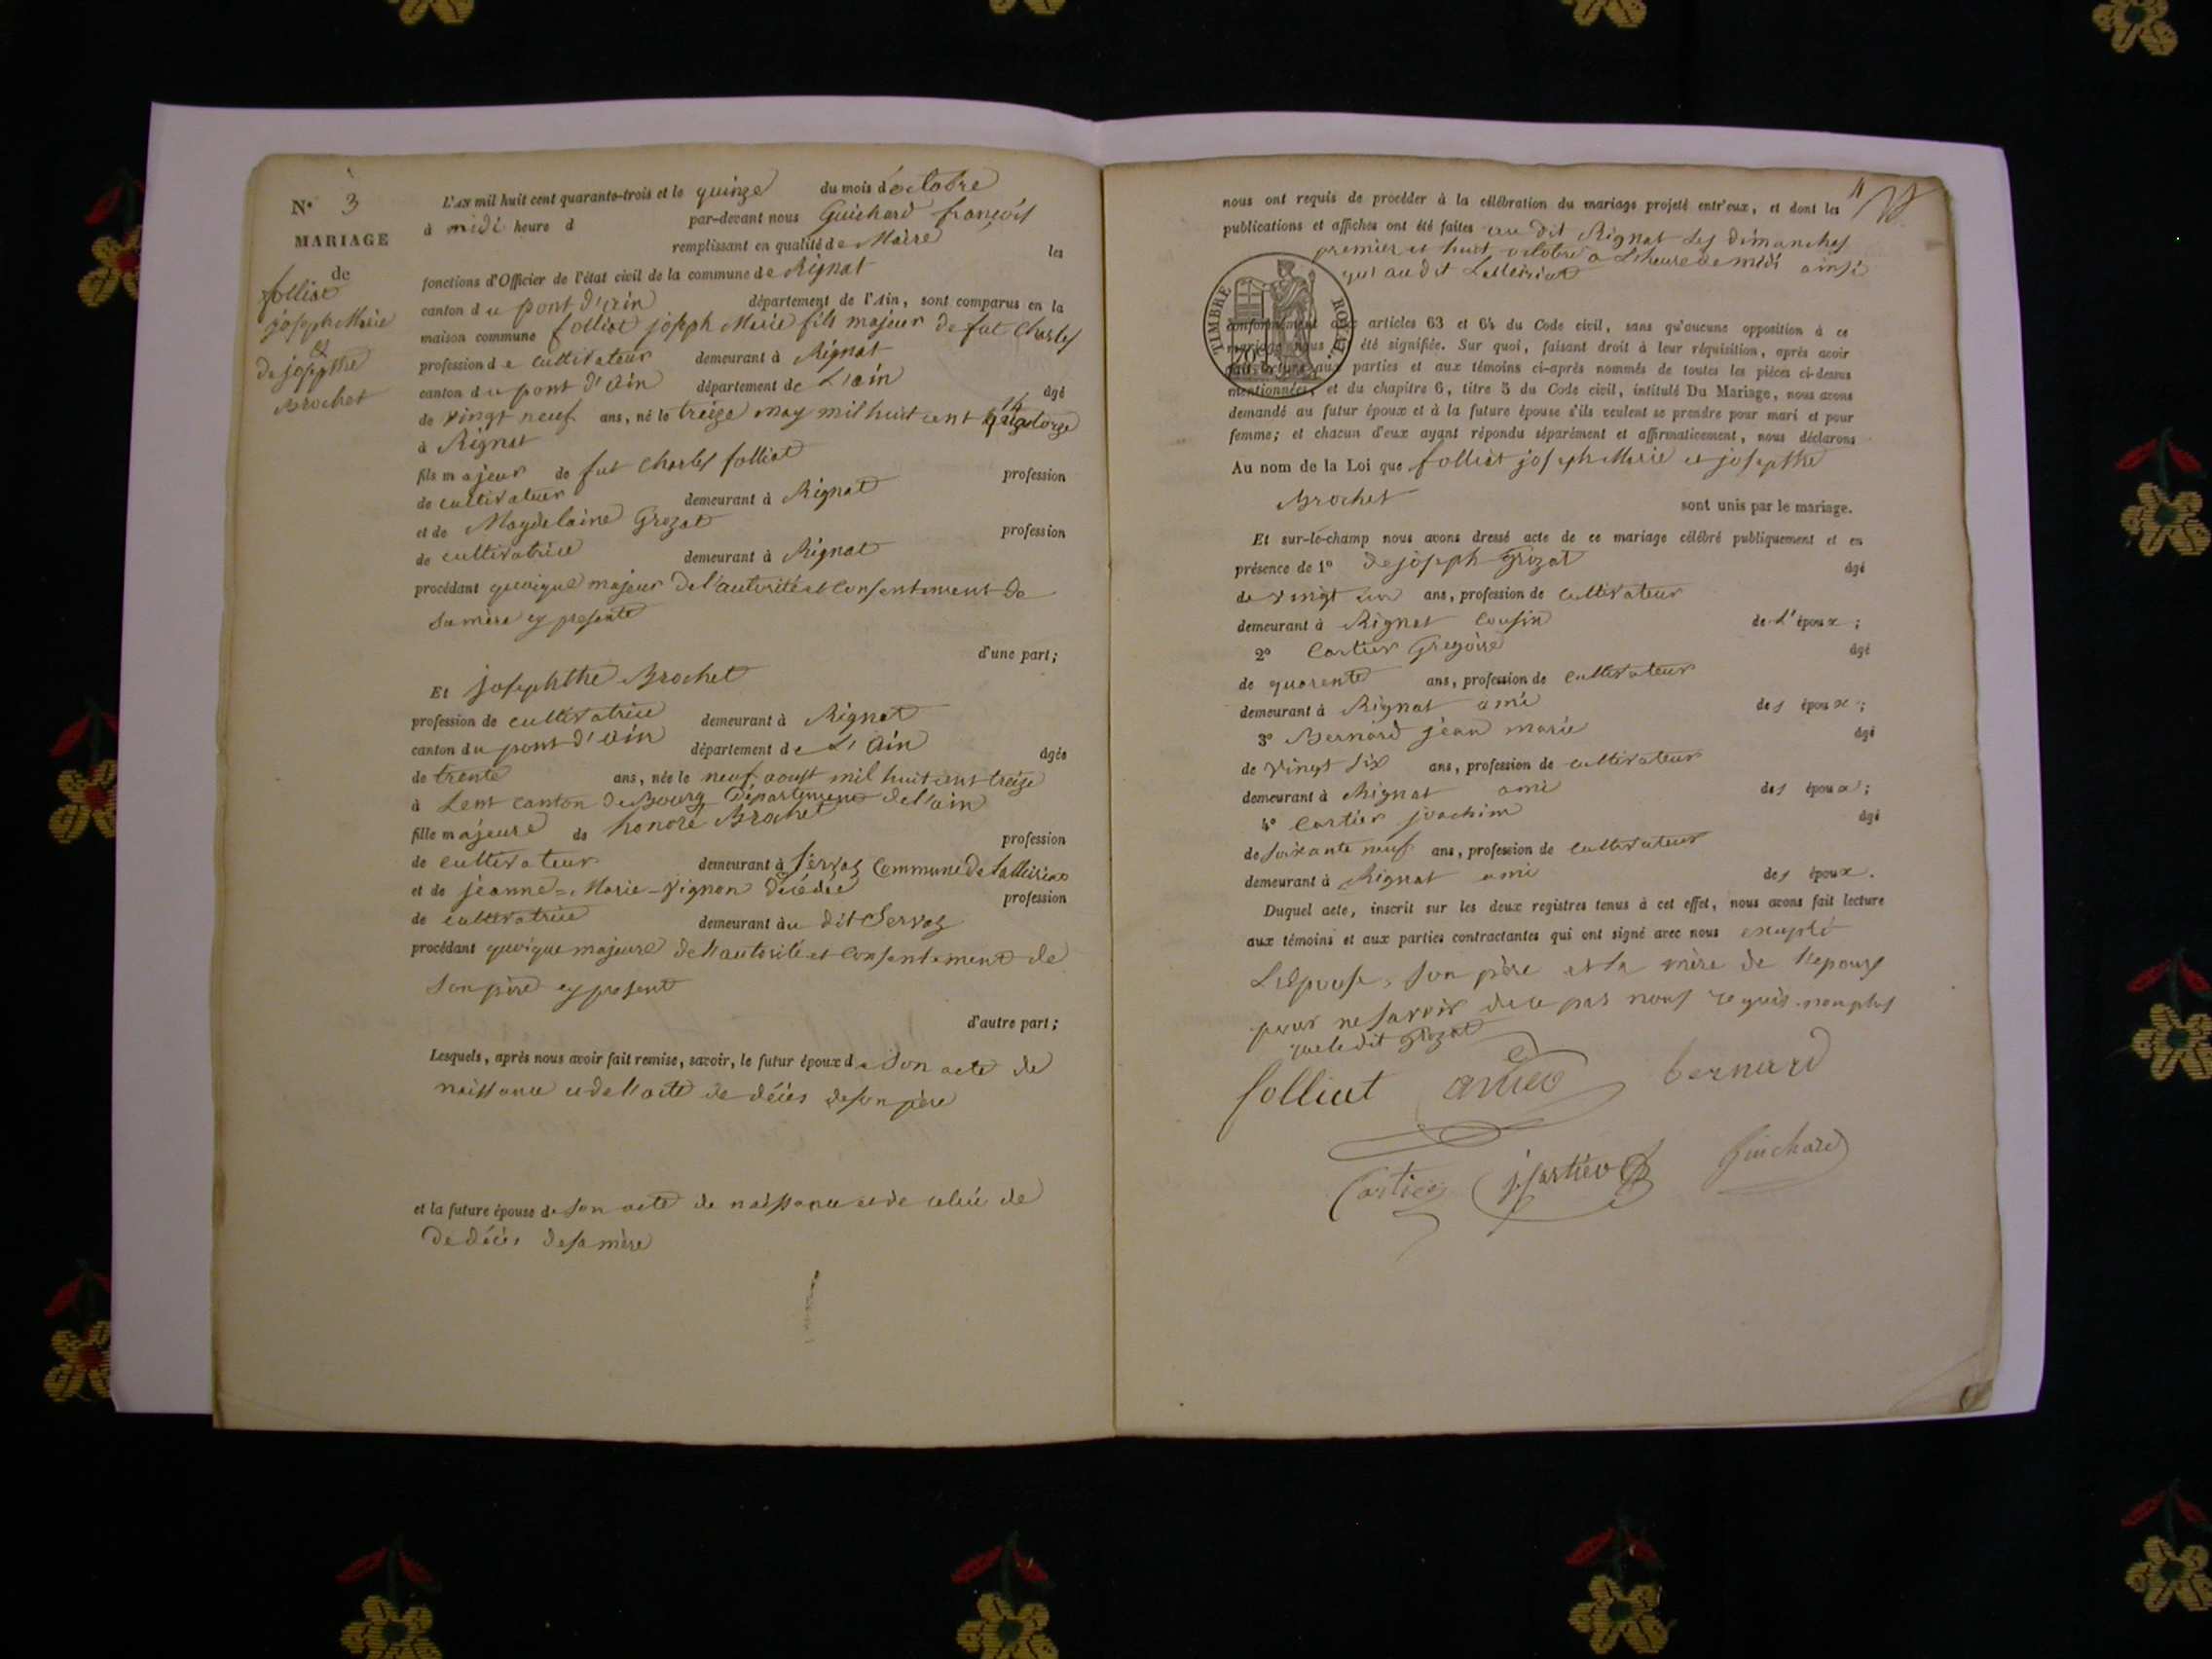 N° 3
MARIAGE
de
folliat
joseph Marie
et
de josepthe
Brochet
L'AN mil huit cent quarante-trois et le quinze du mois d'octobre
à midi heure d par-devant nous Guichard françois
remplissant en qualité de Maire les
fonctions d'Officier de l'état civil de la commune de Rignat
canton du pont d'ain département de l'Ain, sont comparus en la
maison commune folliat joseph Marie fils majeur de fut Charles
profession de cultivateur demeurant à Rignat
canton du pont d'ain département de L'ain âgé
de vingt neuf ans, né le treize may mil huit cent 14 quatorze
à Rignat
fils majeur de fut Charles folliat profession
de cultivateur demeurant à Rignat
et de Magdelaine Grozat profession
de cultivatrice demeurant à Rignat
procédant quoique majeur de l'autorité et consentement de
sa mère cy presente
d'une part;
Et josephthe Brochet
profession de cultivatrice demeurant à Rignat
canton du pont d'ain département de L'Ain âgée
de trente ans, née le neuf aoust mil huit cent treize
à Lent canton de Bourg Département de l'ain
fille majeure de honoré Brochet profession
de cultivateur demeurant à Servas Commune de
et de jeanne-Marie-Vignon décédée profession
de cultivatrice demeurant au dit Servas
procédant quoique majeure de l'autorité et consentement de
son père cy present
d'autre part;
Lesquels, après nous avoir fait remise, savoir, le futur époux de son acte de
naissance et de l'acte de décès de son père
et la future épouse de son acte de naissance et de celui de
de décès de sa mère
nous ont requis de procéder à la célébration du mariage projeté entr'eux, et dont les
publications et affiches ont été faites au dit Rignat les dimanches
premier et huit octobre à L'heure de midi ainsi
qu'au dit
TIMBRE ROYAL
conformément articles 63 et 64 du Code civil, sans qu'aucune opposition à ce
mariage nous été signifiée. Sur quoi, faisant droit à leur réquisition, après avoir
fait lecture aux parties et aux témoins ci-après nommés de toutes les pièces ci-dessus
mentionnées, et du chapitre 6, titre 5 du Code civil, intitulé Du Mariage, nous avons
demandé au futur époux et à la future épouse s'ils veulent se prendre pour mari et pour
femme; et chacun d'eux ayant répondu séparément et affirmativement, nous déclarons
Au nom de la Loi que folliat joseph Marie et josepthe
Brochet sont unis par le mariage.
Et sur-le-champ nous avons dressé acte de ce mariage célébré publiquement et en
présence de 1° de joseph Grozat âgé
de vingt un ans, profession de cultivateur
demeurant à Rignat cousin de L'époux;
2° Cartier Gregoire âgé
de quarente ans, profession de cultivateur
demeurant à Rignat ami des époux;
3° Bernard jean marie âgé
de vingt six ans, profession de cultivateur
demeurant à Rignat ami des époux;
4° Cartier joachim âgé
de soixante neuf ans, profession de cultivateur
demeurant à Rignat ami des époux.
Duquel acte, inscrit sur les deux registres tenus à cet effet, nous avons fait lecture
aux témoins et aux parties contractantes qui ont signé avec nous excepté
L'Epouse, son père et la mère de l'epoux
pour ne savoir de ce pas nous requis non plus
que le dit Grozat
folliat bernard
Cartier j. Cartier Guichard